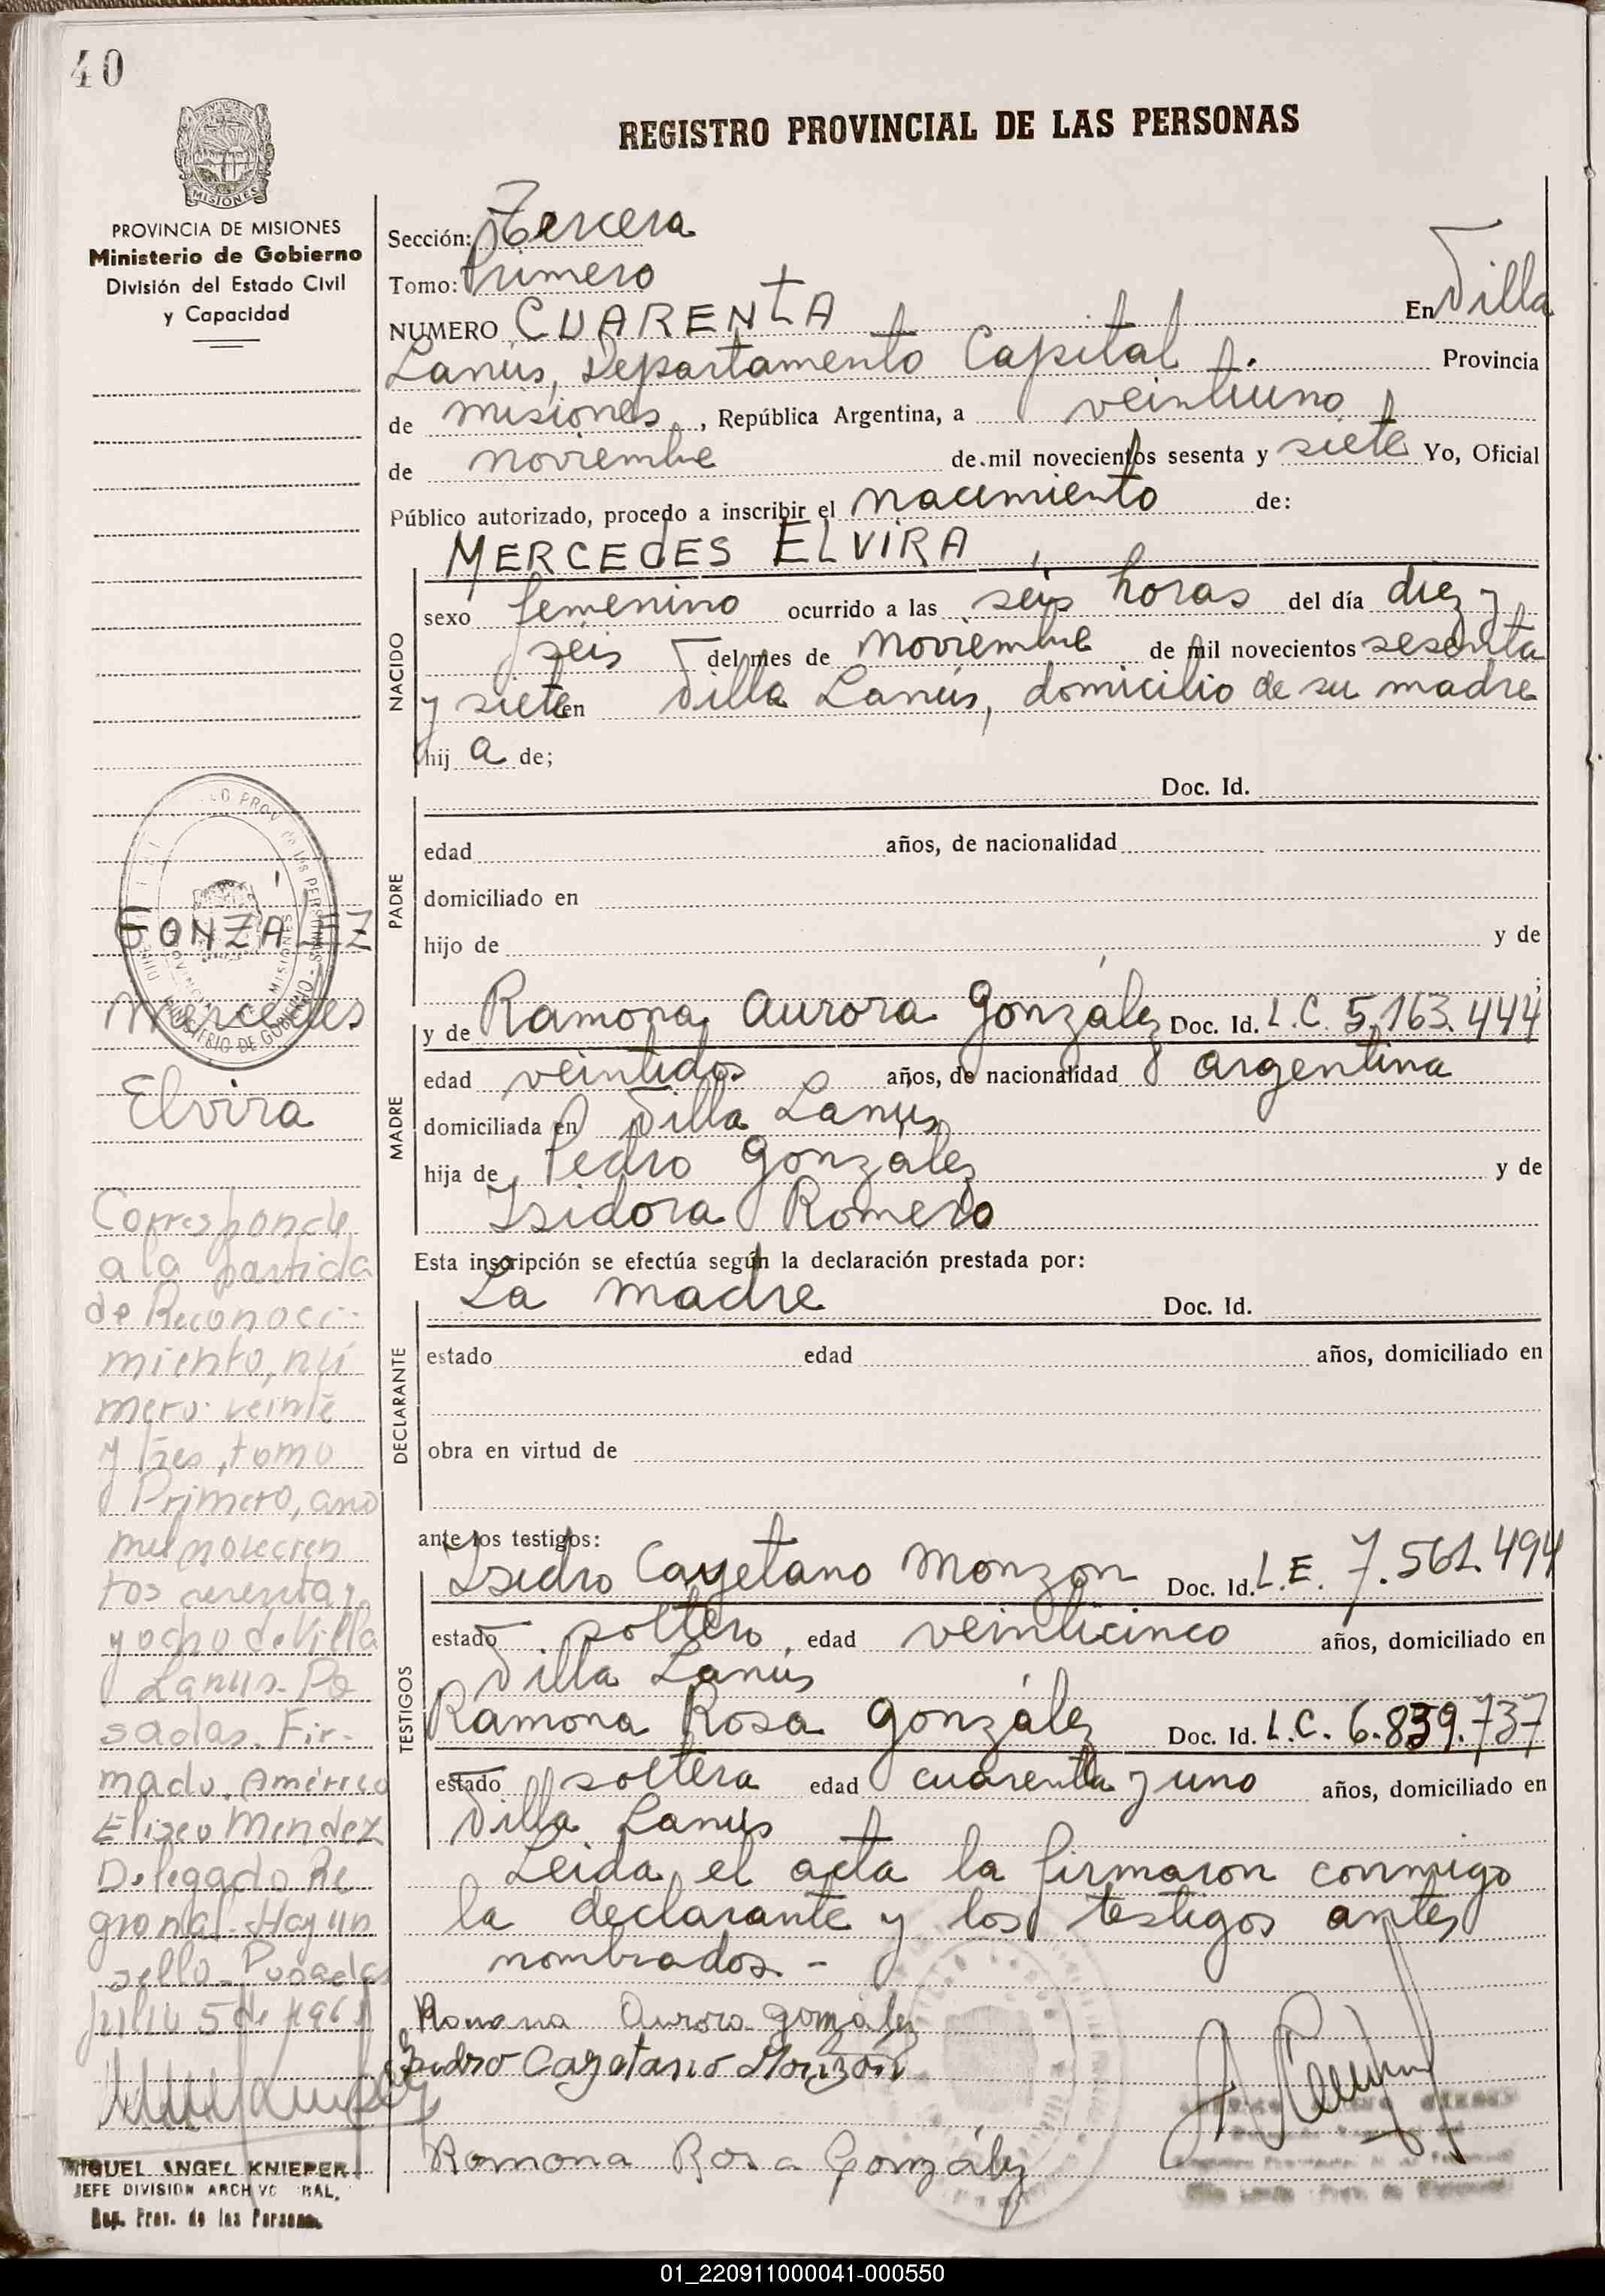 40
MISIONES
PROVINCIA DE MISIONES
Ministerio de Gobierno
División del Estado Civil
y Capacidad
GONZÁLEZ
Mercedes
Elvira
Corresponde
a la partida
de Reconoci-
miento, nú
mero veinte
y tres, tomo
Primero, año
mil novecien
tos sesenta
y ocho de Villa
Lanus. Po
sadas. Fir-
mado. Américo
Eliseo Mendez
Delegado Re
gional. Hay un
sello. Posadas
Julio 5 de 196
MIGUEL ANGEL KNIEPER
JEFE DIVISION ARCHIVO RAL.
Reg. Prov. de las Personas
REGISTRO PROVINCIAL DE LAS PERSONAS
Sección: Tercera
Tomo: Primero
NUMERO CUARENTA En Villa
Lanús, Departamento Capital Provincia
de Misiones, República Argentina, a veintiuno
de noviembre de mil novecientos sesenta y siete Yo, Oficial
Público autorizado, procedo a inscribir el nacimiento de:
MERCEDES ELVIRA,
NACIDO
sexo femenino ocurrido a las seis horas del día diez y
seis del mes de noviembre de mil novecientos sesenta
y siete en Villa Lanús, domicilio de su madre
hij a de;
PADRE
Doc. Id.
edad años, de nacionalidad
domiciliado en
hijo de y de
;
MADRE
y de Ramona Aurora González Doc. Id. L.C. 5.163.444
edad veintidos años, de nacionalidad argentina
domiciliada en Villa Lanús
hija de Pedro González y de
Isidora Romero
Esta inscripción se efectúa según la declaración prestada por:
DECLARANTE
La madre Doc. Id.
estado edad años, domiciliado en
obra en virtud de
ante los testigos:
TESTIGOS
Isidro Cayetano Monzon Doc. Id. L.E. 7.561.494
estado soltero, edad veinticinco años, domiciliado en
Villa Lanús
Ramona Rosa González Doc. Id. L.C. 6.839.737
estado soltera edad cuarenta y uno años, domiciliado en
Villa Lanús
Leida el acta la firmaron conmigo
la declarante y los testigos antes
nombrados. -
Ramona Aurora González
Isidro Cayetano Monzon
Ramona Rosa González
01_220911000041-000550